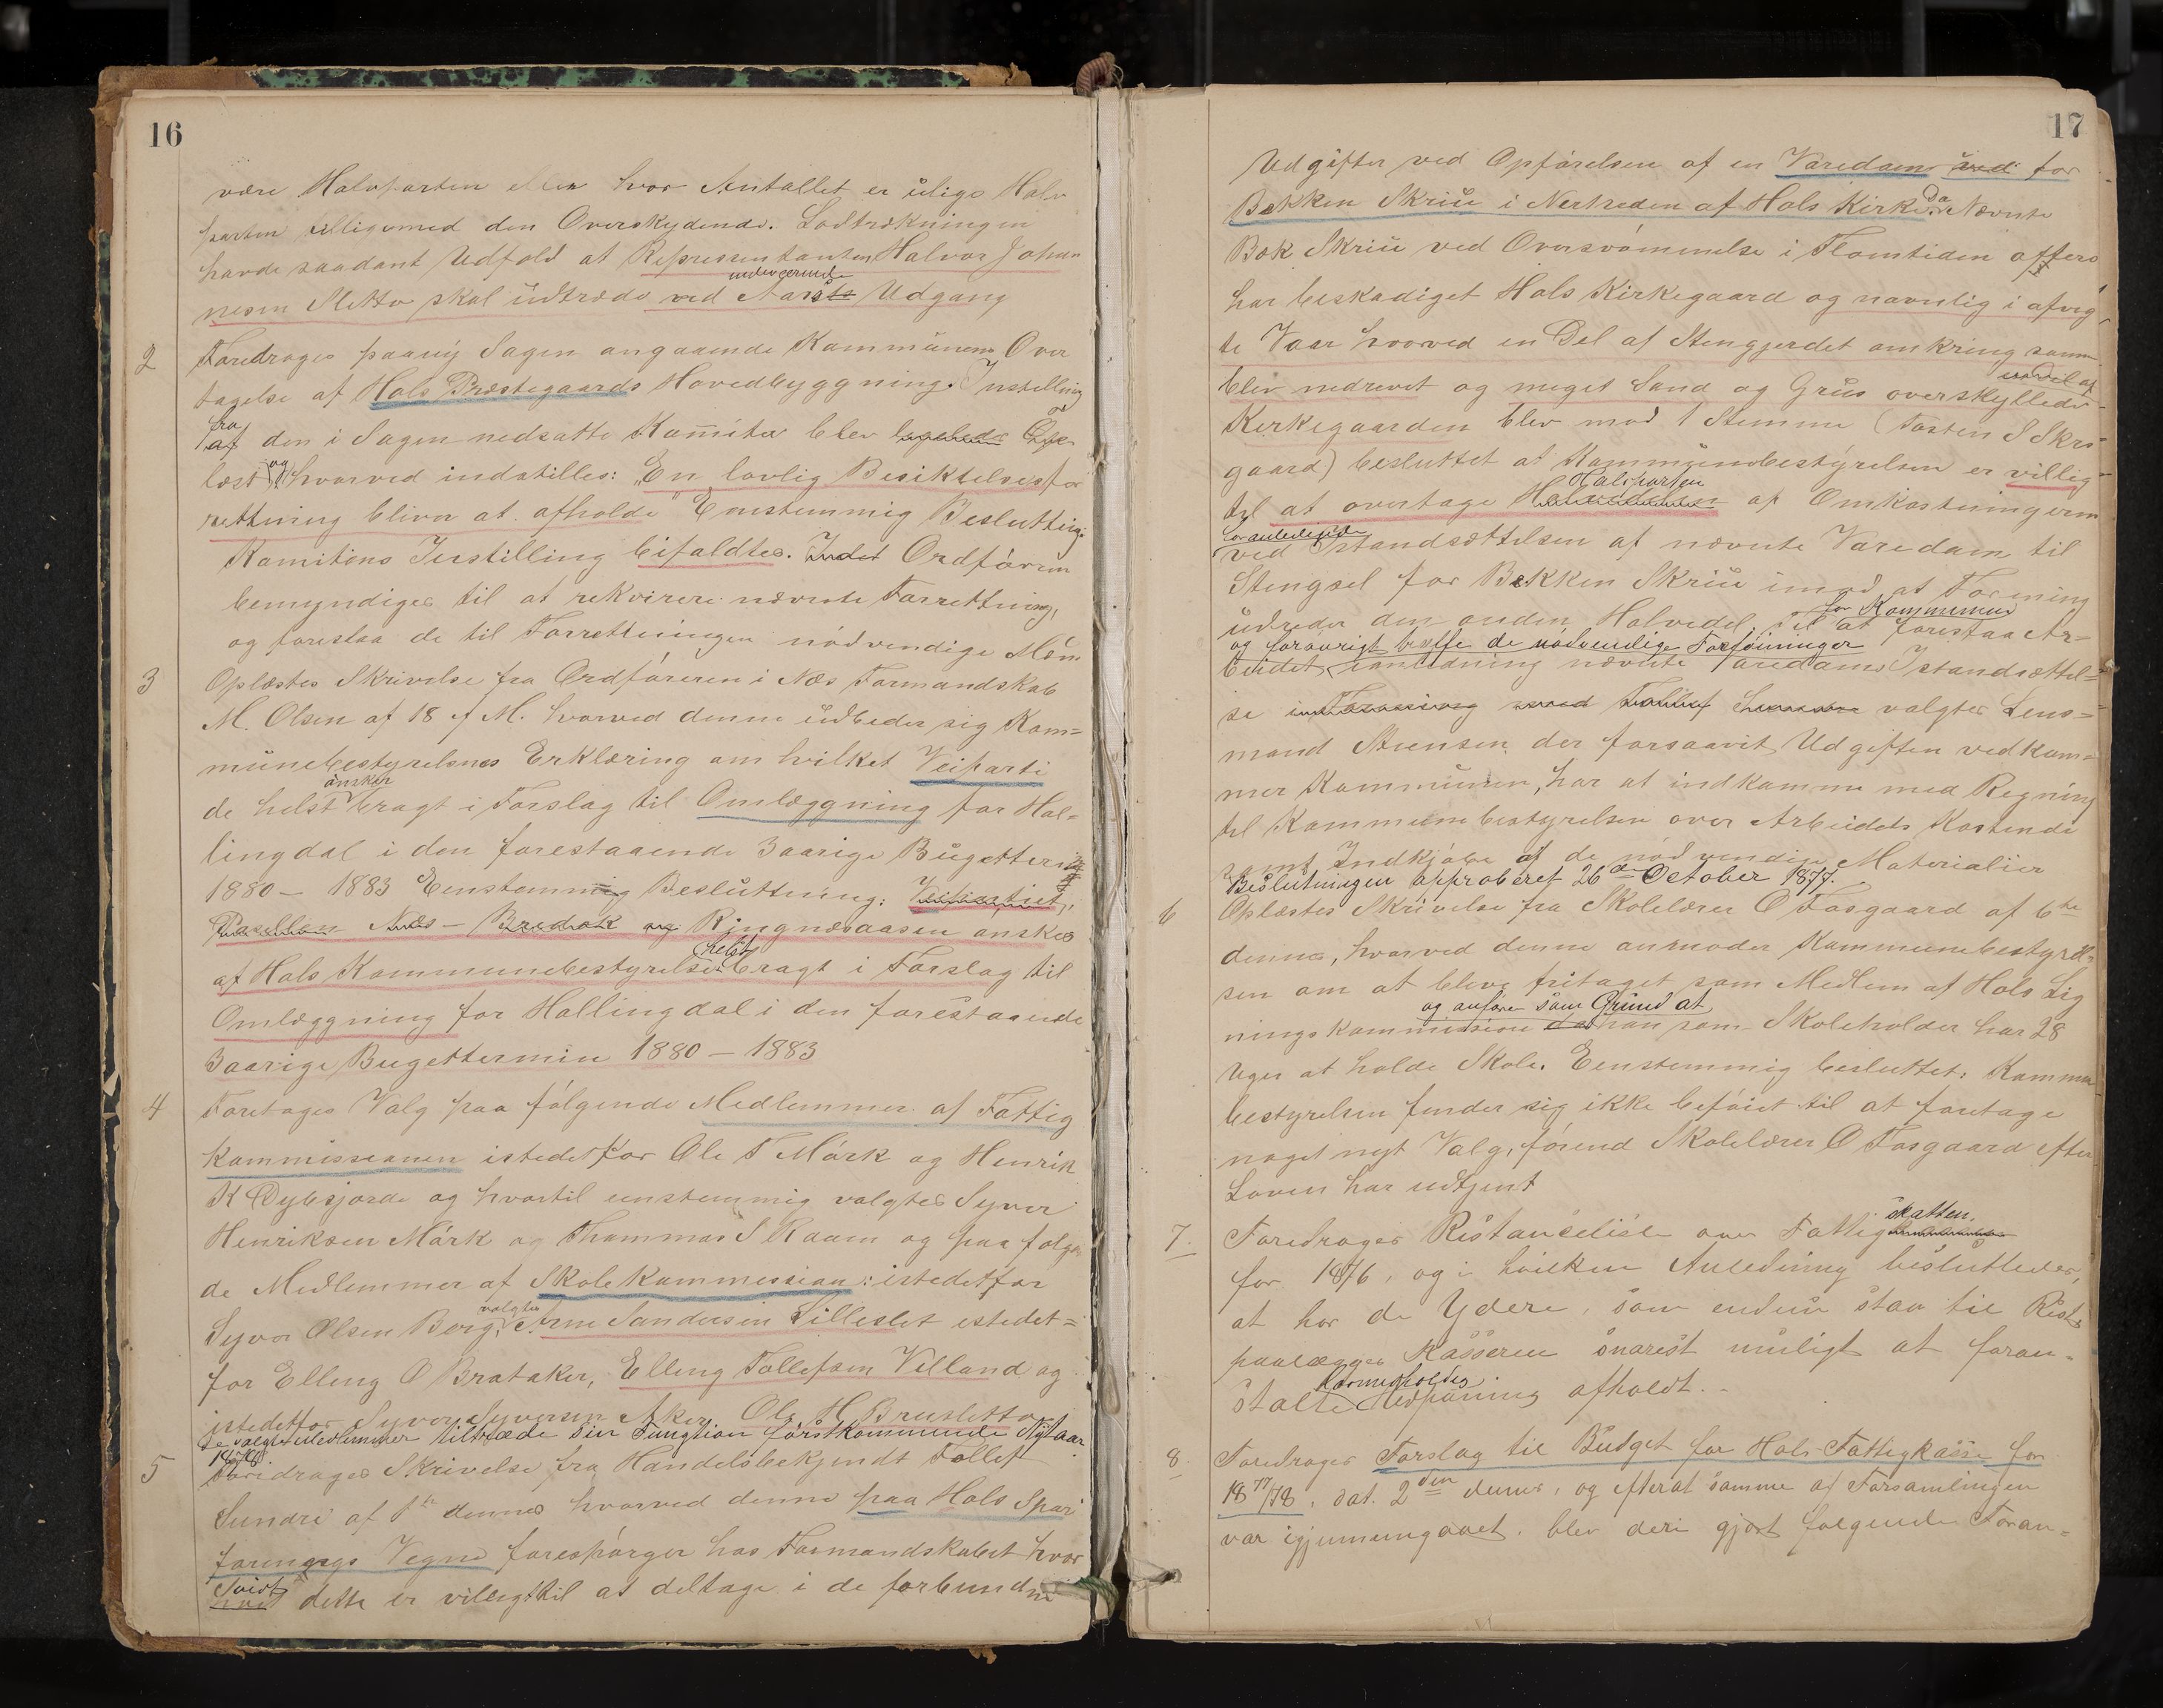 16
være Halvparten eller hvor Antallet er ulige Halv
parten tilligemed den Overskydende. Lodtrækningen
havde saadant Udfald at Repræsentanten Halvor Johan
nesen Sletto skal udtræde ved nuværende Aars Udgang
2 Foredroges paany Sagen angaaende Kommunens Over
tagelse af Hols Præstegaards Hovedbyggning. Instilling
fra den i Sagen nedsatte Komite blev Op
læst og hvorved indstilles: "En lovlig Besiktelsesfor
rettning bliver at afholde" Enstemmig Besluttning:
Komiteens Instilling bifaldtes. Ordføreren
bemyndiges til at rekvirere nævnte Forrettning,
og forestaa de til Forrettningen nødvendige Mæn
3 Oplæstes Skrivelse fra Ordføreren i Næs Formandskab
M. Olsen af 18 f M. hvorved denne udbeder sig Kom=
munebestyrelsnes Erklæring om hvilket Veiparti
de helst ønsker bragt i Forslag til Omlæggning for Hal=
lingdal i den forestaaende 3aarige Bugettermin
1880 – 1883 Eenstemmig Besluttning: Veipartiet,
Næs – Bredok og Ringnæsaasen ønskes
af Hols Kommunebestyrelse helst bragt i Forslag til
Omlæggning for Hallingdal i den forestaaende
3aarige Bugettermin 1880 – 1883
4 Foretoges Valg paa følgende Medlemmer af Fattig
kommissionen istedetfor Ole T Mørk og Henrik
K Dybsjorde og hvortil eenstemmig valgtes Syver
Henriksen Mørk og Thommas S Raam og paa følgen
de Medlemmer af Skolekommission: istedetfor
Syver Olsen Berg, valgtes Arne Sandersen Lilleslet istedet=
for Elling O Brataker, Elling Tollefsen Villand og
istedetfor Syver Syversen Aker Ole H Brusletto
De valgte Medlemmer tiltræde sin Fungtion førstkommende Nytaar
1878
5 Foredroges Skrivelse fra Handelsbekjendt Tollef
Sundre af 1ste dennes hvorved denne paa Hols Spare
foreneings Vegne forespørger hos Formandskabet hvor
vidt dette er villigt til at deltage i de forbundne
17
Udgifter ved Opførelsen af en Varedam ved for
Bekken Skriu i Nerheden af Hols Kirke. da Nævnte
Bæk Skriu ved Oversvømmelse i Flomtiden oftere
har beskadiget Hols Kirkegaard og navnlig i afvig
te Vaar hvorved en Del af Stengjerdet omkring samme
blev nedrevet og meget Sand og Grus overskyllede en Del af
Kirkegaarden blev mod 1 Stemme (Tosten S Skrå=
gaard) besluttet at Kommunebestyrelsen er villig
til at overtage Halvparten af Omkostningerne
ved Istandsættelsen af nævnte Varedam til
Stengsel for Bekken Skriu imod at Forening
udreder den anden Halvedel. Til at for Kommunen forestaa Ar=
og forøvrigt træffe de nødvendige Forføininger
beidet i anledning nævnte Varedams Istandsættel=
se valgtes Lens=
mand Steensen der forsaavit Udgiften vedkom=
mer Kommunen, har at indkomme med Regning
til Kommunebestyrelsen over Arbeidets Kostende
samt Indkjøbe af de nødvendige Materialier
Beslutningen approberet 26de October 1877.
6 Oplæstes Skrivelse fra Skolelærer O Fosgaard af 6te
dennes, hvorved denne anmoder Kommunebestyrel=
sen om at blive fritaget som Medlem af Hols Lig
ningskommission og anføre som Grund at han som Skoleholder har 28
Uger at holde Skole. Eenstemmig besluttet: Kommune
bestyrelsen finder sig ikke beføiet til at foretage
noget nyt Valg, førend Skolelærer O Fosgaard efter
Loven har udtjent
7. Foredroges Restanceliste over Fattigskatten
for 1876, og i hvilken Anledning besluttedes,
at hos de Ydere, som endnu staa til Rest,
paalægges Kasseren snarest muligt at foran=
stalte Udpaning afholdt.
8. Foredroges Forslag til Budget for Hols Fattigkasse for
1877/78, dat. 2den dennes, og efterat samme af Forsamlingen
var igjennemgaaet, blev deri gjort følgende Foran=